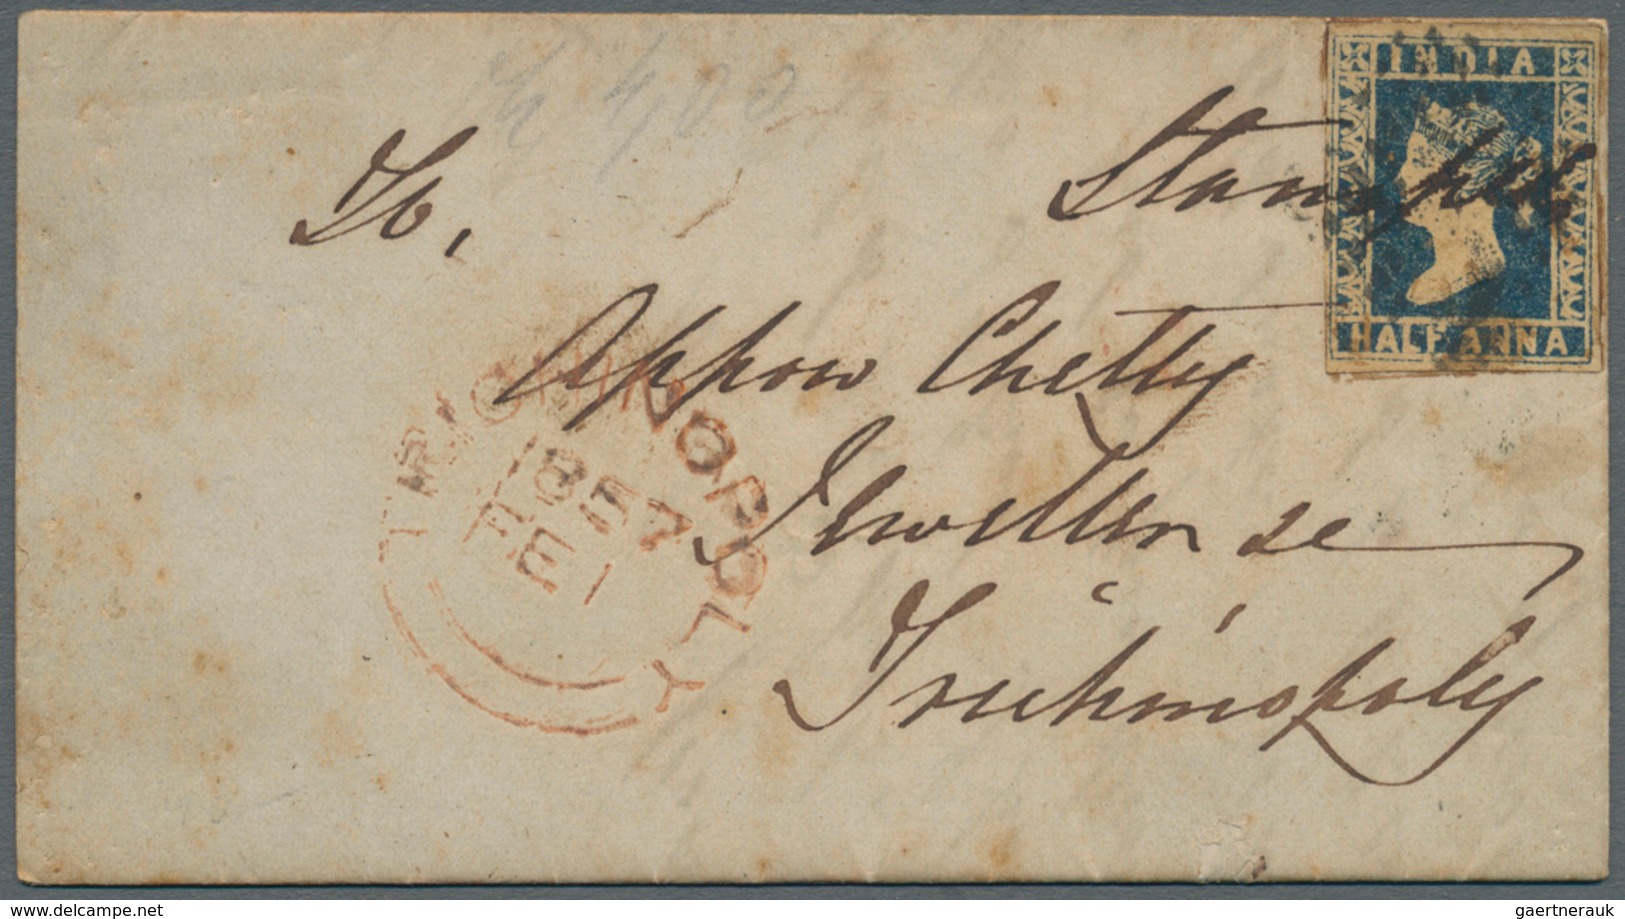 INDIA
HALF ANNA
Stamped
To,
Appow Chetty
Jeweller &c
Trichinopoly
TRICHINOPOLY
1857
FE 1
delcampe.net
gaertnerauk